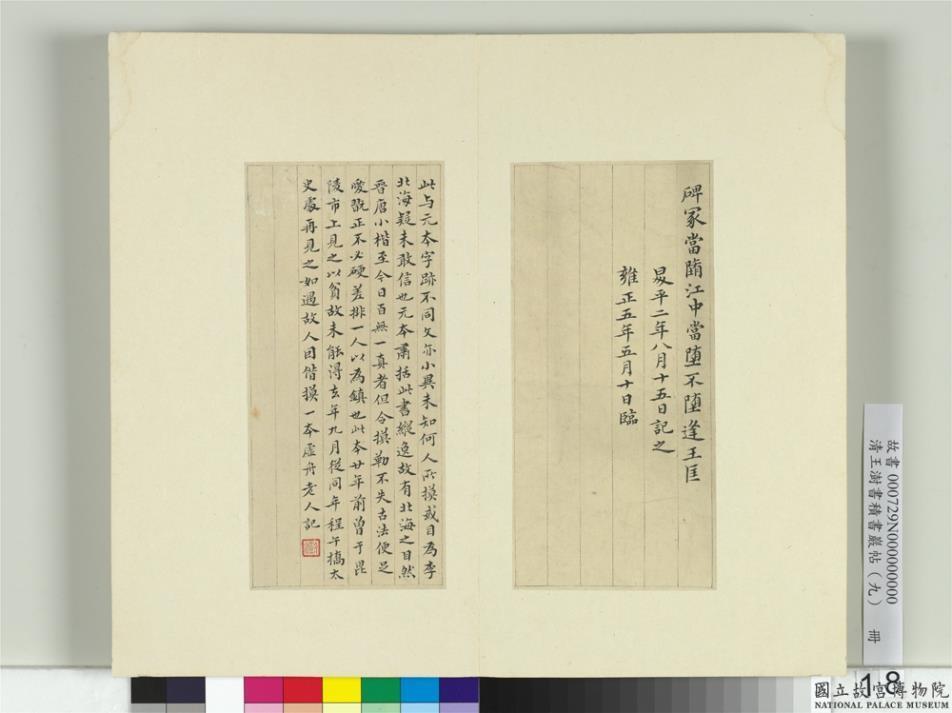 碑冢當隋江中當墮不墮逢王匡
昇平二年八月十五日記之
雍正五年五月十日臨
此与元本字跡不同文亦小異未知何人所摸或目為李
北海疑未敢信也元本肅括此書縱逸故有北海之目然
晉唐小楷至今日百無一真者但令摸勒不失古法便足
愛翫正不必硬差排一人以為鎮也此本廿年前曾于毘
陵市上見之以貧故未能得去年九月從同年程午橋太
史處再見之如過故人因借摸一本虛舟老人記
故書 000729N000000000
清王澍書積書巖帖（九） 冊
18
國立故宮博物院
NATIONAL PALACE MUSEUM